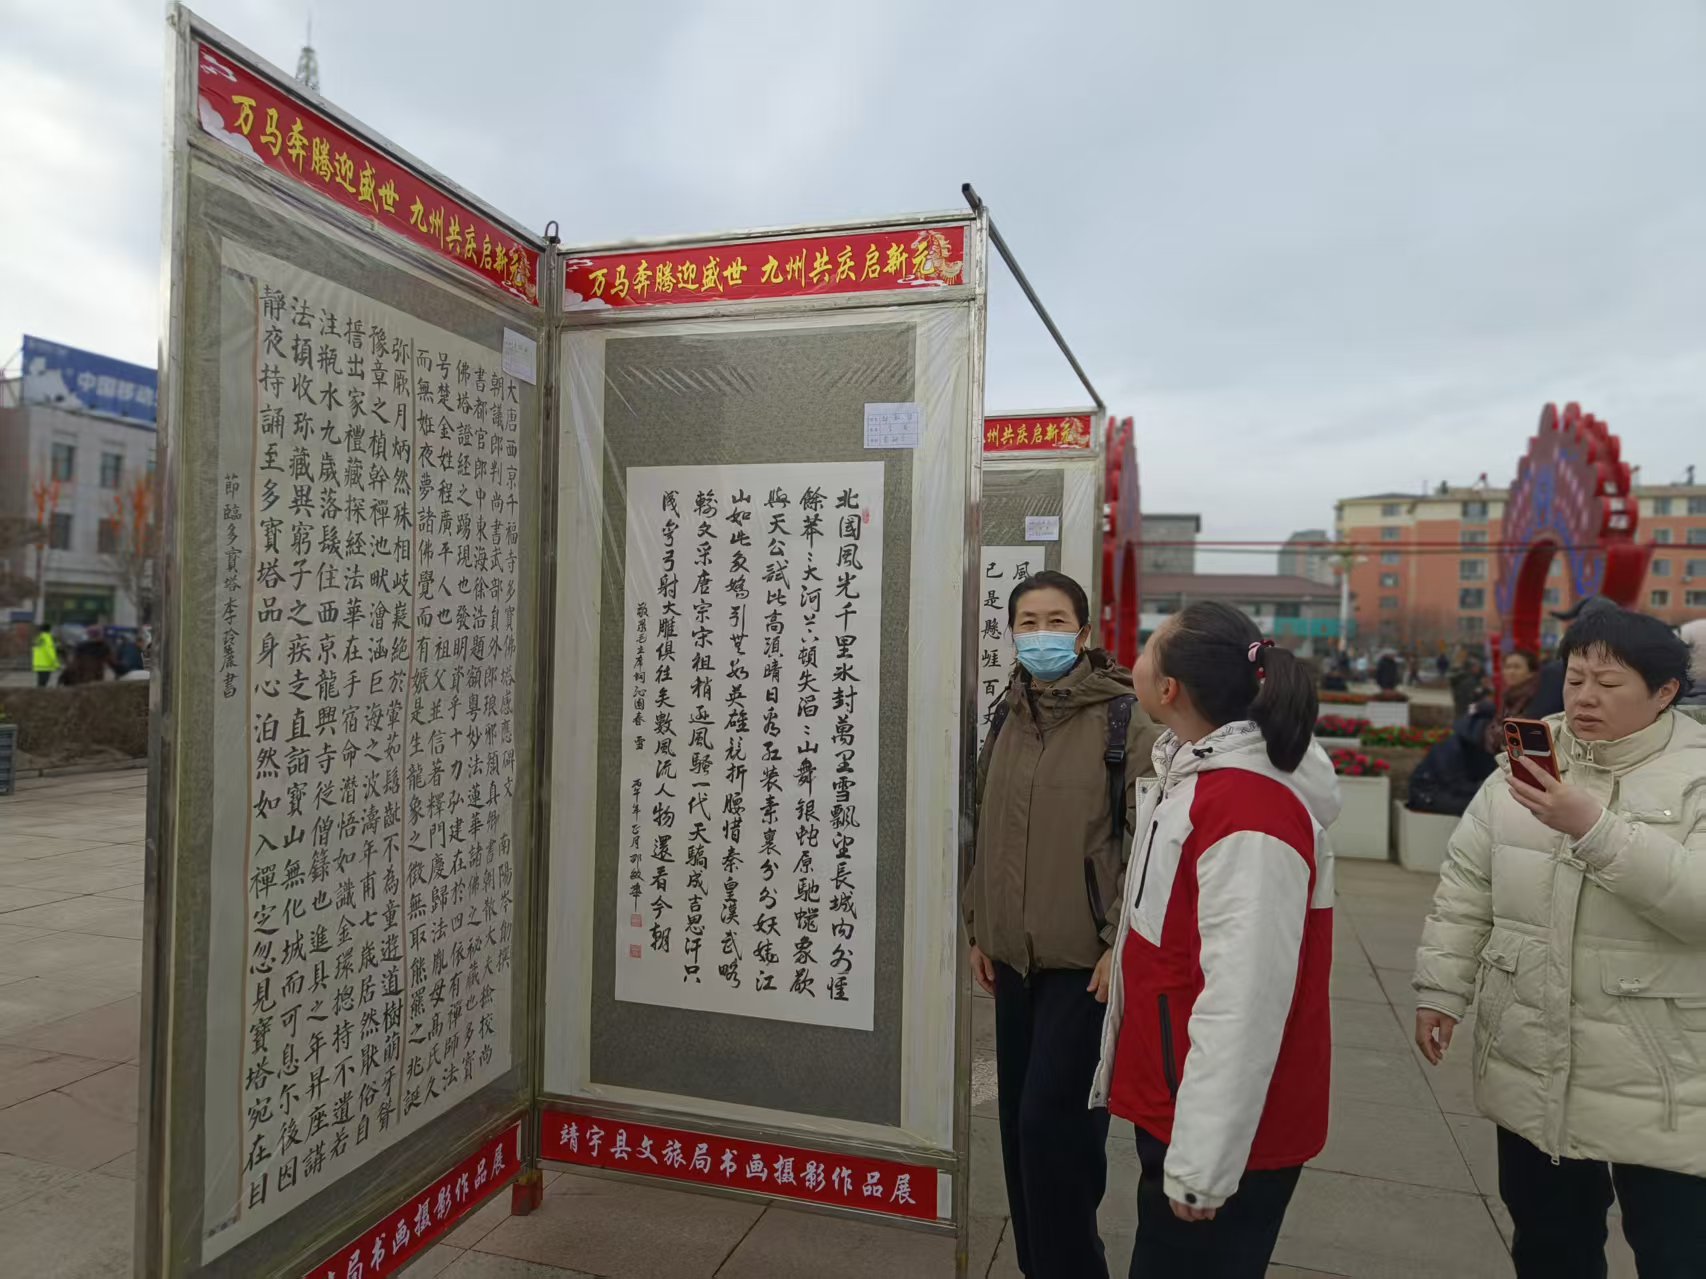 万马奔腾迎盛世 九州共庆启新元
大唐西京千福寺多寶佛塔感應碑文 南陽岑勛撰
朝議郎判尚書武部員外郎琅邪顏真卿書朝散大夫撿校尚
書都官郎中東海徐浩題額粵妙法蓮華諸佛之秘藏也多寶
佛塔證經之踴現也發明資乎十力弘建在於四依有禪師法
号楚金姓程廣平人也祖父並信著釋門慶歸法胤母高氏久
而無姙夜夢諸佛覺而有娠是生龍象之徵無取熊羆之兆誕
弥厥月炳然殊相岐嶷絕於葷茹髫齓不為童遊道樹萌牙聳
豫章之楨幹禪池畎澮涵巨海之波濤年甫七歲居然猒俗自
誓出家禮藏探經法華在手宿命潛悟如識金環揔持不遺若
注瓶水九歲落髮住西京龍興寺從僧籙也進具之年昇座講
法頓收珎藏異窮子之疾走直詣寶山無化城而可息尓後因
靜夜持誦至多寶塔品身心泊然如入禪定忽見寶塔宛在目
節臨多寶塔 李玲麗書
局书画摄影作品展
万马奔腾迎盛世 九州共庆启新元
北國風光千里冰封萬里雪飄望長城內外惟
餘莽〻大河上下頓失滔〻山舞銀蛇原馳蠟象欲
與天公試比高須晴日看紅裝素裹分外妖嬈江
山如此多嬌引無數英雄競折腰惜秦皇漢武略
輸文采唐宗宋祖稍遜風騷一代天驕成吉思汗只
識彎弓射大雕俱往矣數風流人物還看今朝
敬录毛主席词沁園春 雪 丙午年正月邵敏華
靖宇县文旅局书画摄影作品展
九州共庆启新元
風
已是懸崖百丈
中国移动